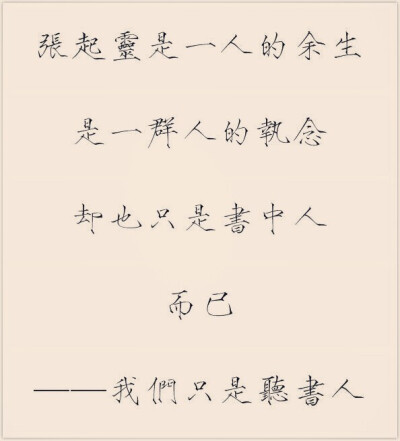 張起靈是一人的余生
是一群人的執念
却也只是書中人
而已
——我們只是聽書人